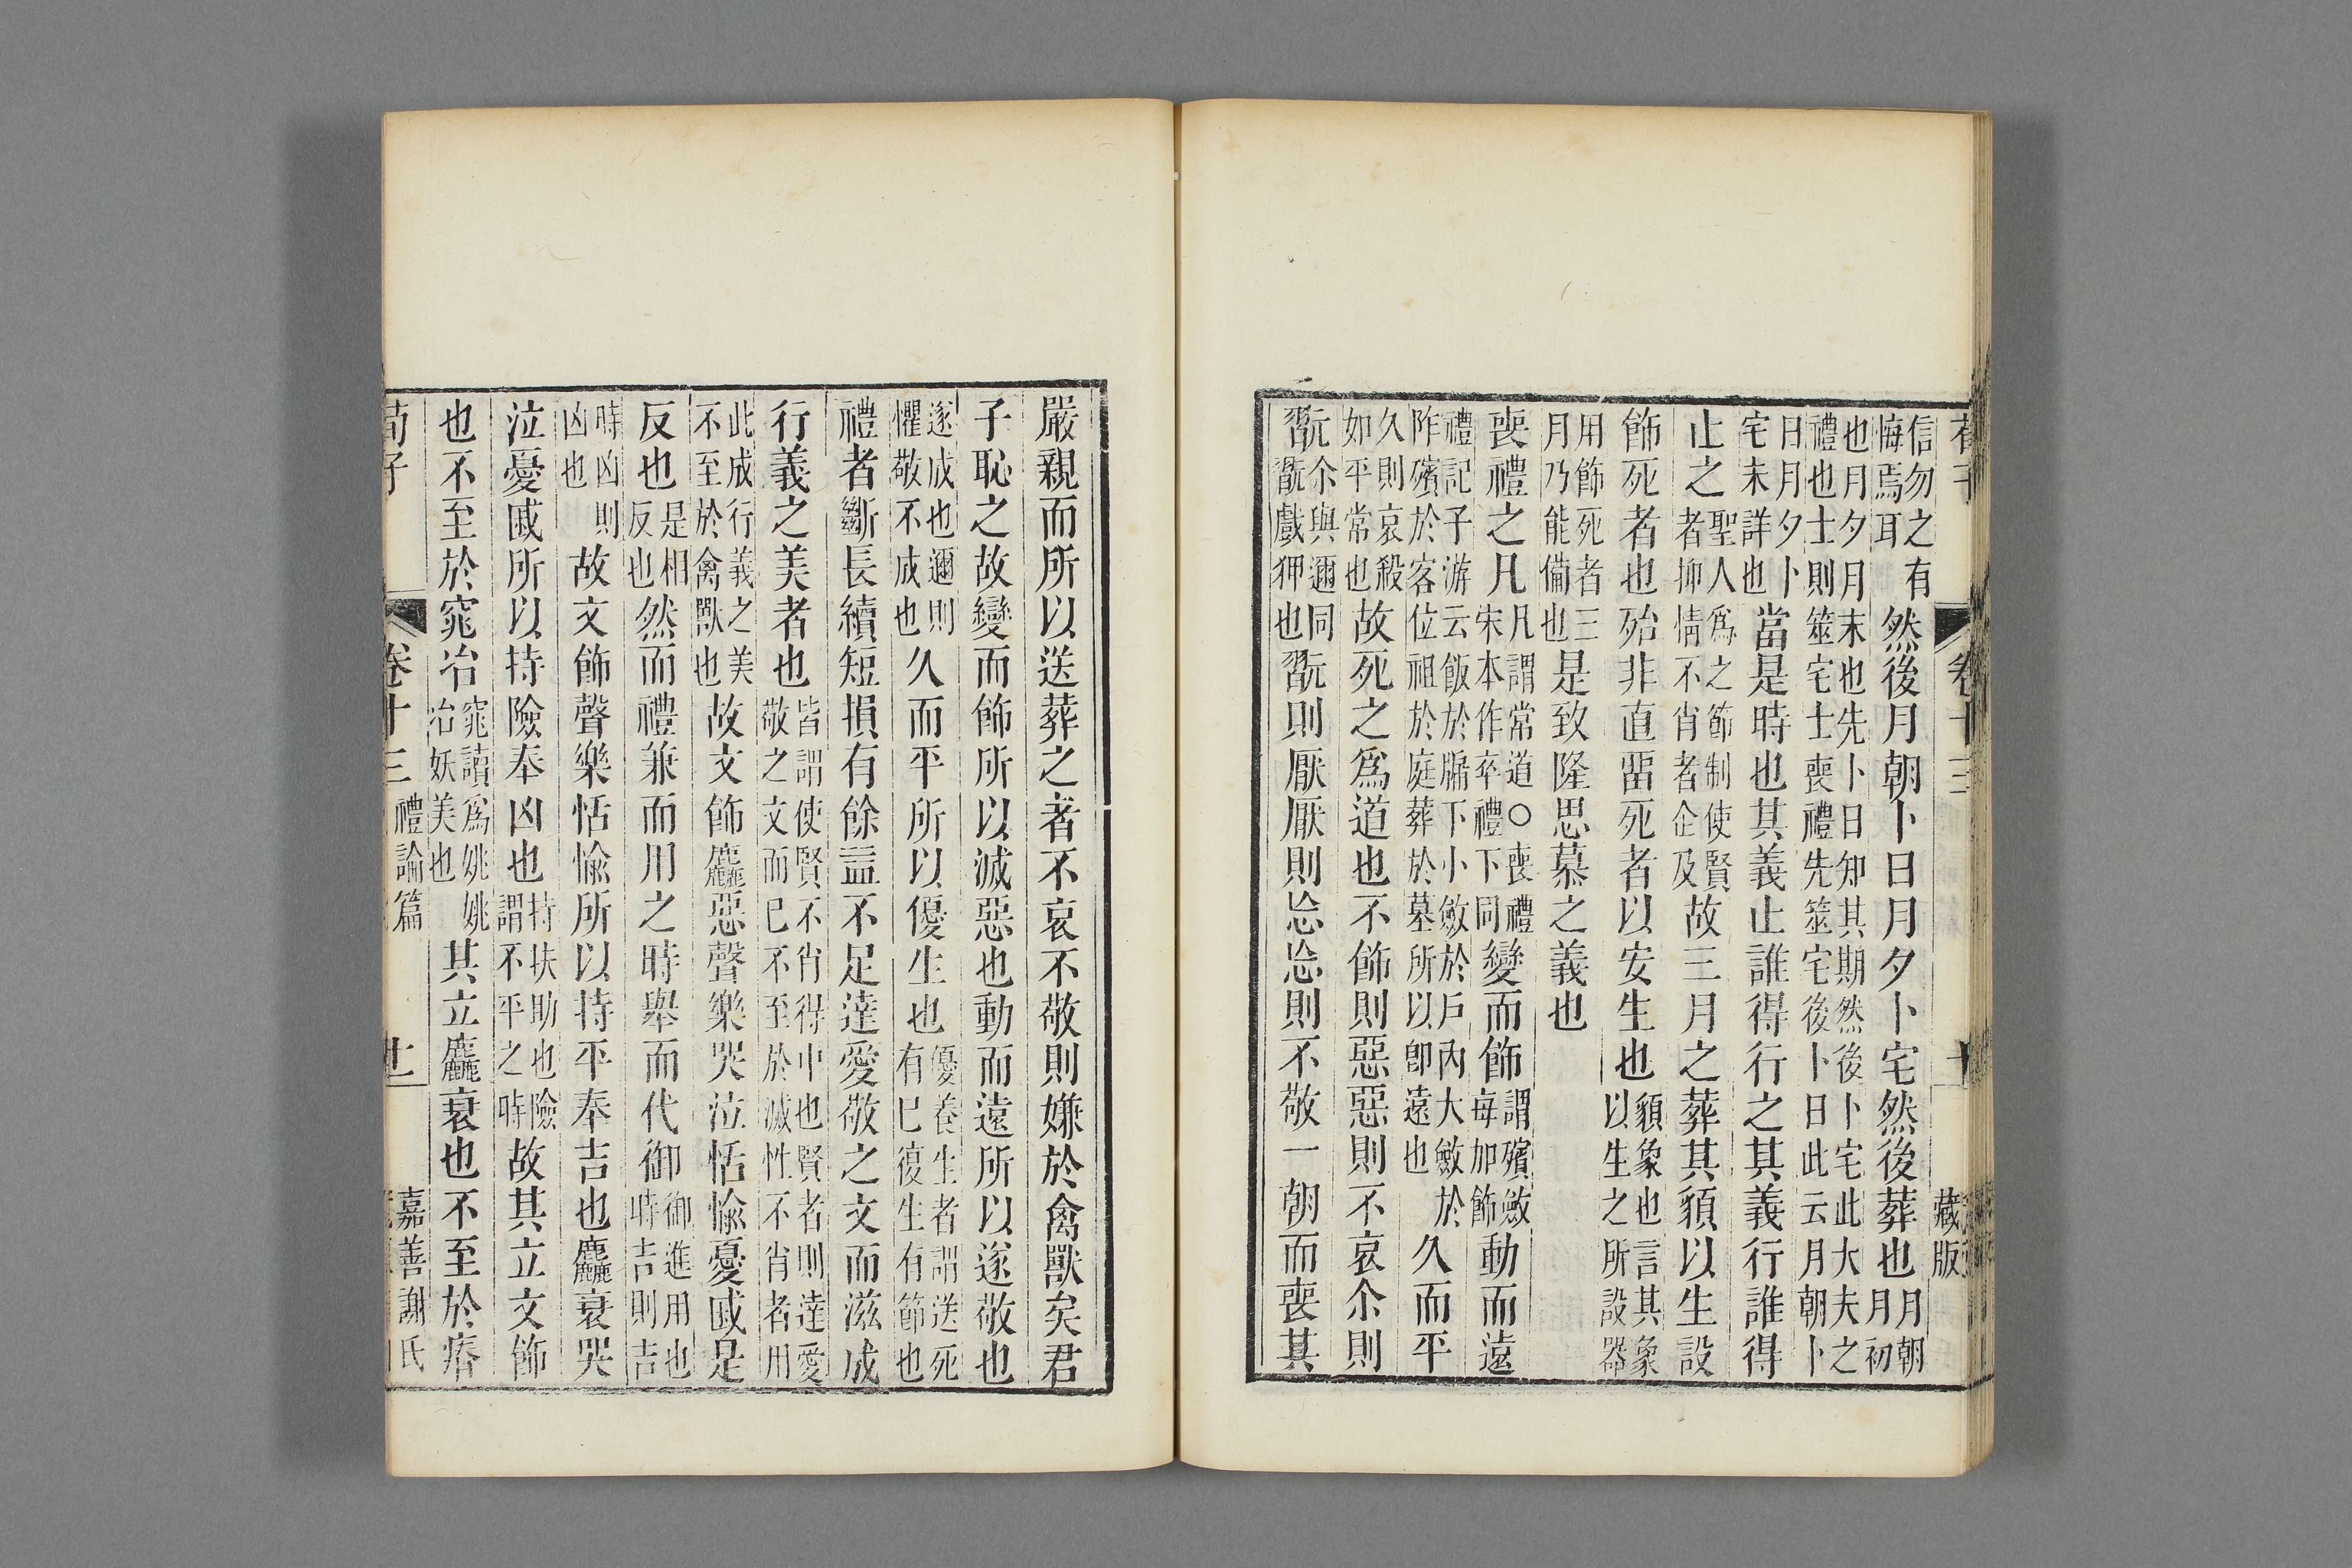 荀子 卷十三 藏版
信勿之有悔焉耳然後月朝卜日月夕卜宅然後葬也月朝月初
也月夕月末也先卜日知其期然後卜宅此大夫之禮也士則筮宅士喪禮先筮宅後卜日此云月朝卜
日月夕卜宅未詳也當是時也其義止誰得行之其義行誰得
止之聖人爲之節制使賢者抑情不肖者企及故三月之葬其䫉以生設
飾死者也殆非直畱死者以安生也䫉象也言其象以生之所設器
用飾死者三月乃能備也是致隆思慕之義也
喪禮之凡凡謂常道○喪禮宋本作卒禮下同變而飾謂殯斂每加飾動而遠
禮記子游云飯於牖下小斂於戶內大斂於阼殯於客位祖於庭葬於墓所以卽遠也久而平
久則哀殺如平常也故死之爲道也不飾則惡惡則不哀尒則
翫尒與邇同翫戲狎也翫則厭厭則忘忘則不敬一朝而喪其
嚴親而所以送葬之者不哀不敬則嫌於禽獸矣君
子恥之故變而飾所以滅惡也動而遠所以遂敬也
遂成也邇則懼敬不成也久而平所以優生也優養生者謂送死有已復生有節也
禮者斷長續短損有餘益不足達愛敬之文而滋成
行義之美者也皆謂使賢不肖得中也賢者則達愛敬之文而已不至於滅性不肖者用
此成行義之美不至於禽獸也故文飾麤惡聲樂哭泣恬愉憂戚是
反也是相反也然而禮兼而用之時舉而代御御進用也時吉則吉
時凶則凶也故文飾聲樂恬愉所以持平奉吉也麤衰哭
泣憂戚所以持險奉凶也持扶助也險謂不平之時故其立文飾
也不至於窕冶窕讀爲姚姚冶妖美也其立麤衰也不至於瘠
荀子 卷十三 禮論篇 廿一 嘉善謝氏